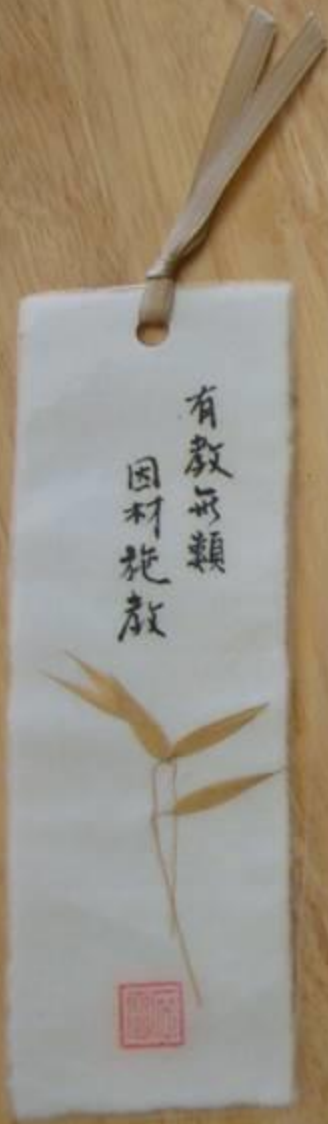 有教無類
因材施教